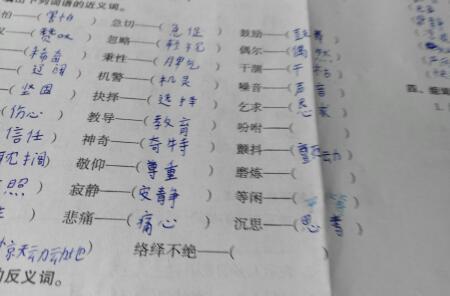 出下列词语的近义词。
怕——(害怕) 急切——(急促) 鼓励——(
(赞叹) 忽略——( 偶尔——(偶然)
(稀奇) 秉性——(脾气) 干涸——(干枯)
(辽阔) 机警——(机灵) 噪音——(声音)
(坚固) 抉择——(选择) 乞求——(恳求)
(伤心) 教导——(教育) 吩咐——( )
(信任) 神奇——(奇特) 颤抖——(颤动)
敬仰——(尊重) 磨炼——( )
照) 寂静——(安静) 等闲——(
悲痛——(痛心) 沉思——(思考)
惊天动动地) 络绎不绝——(
的反义词。
四、
1.